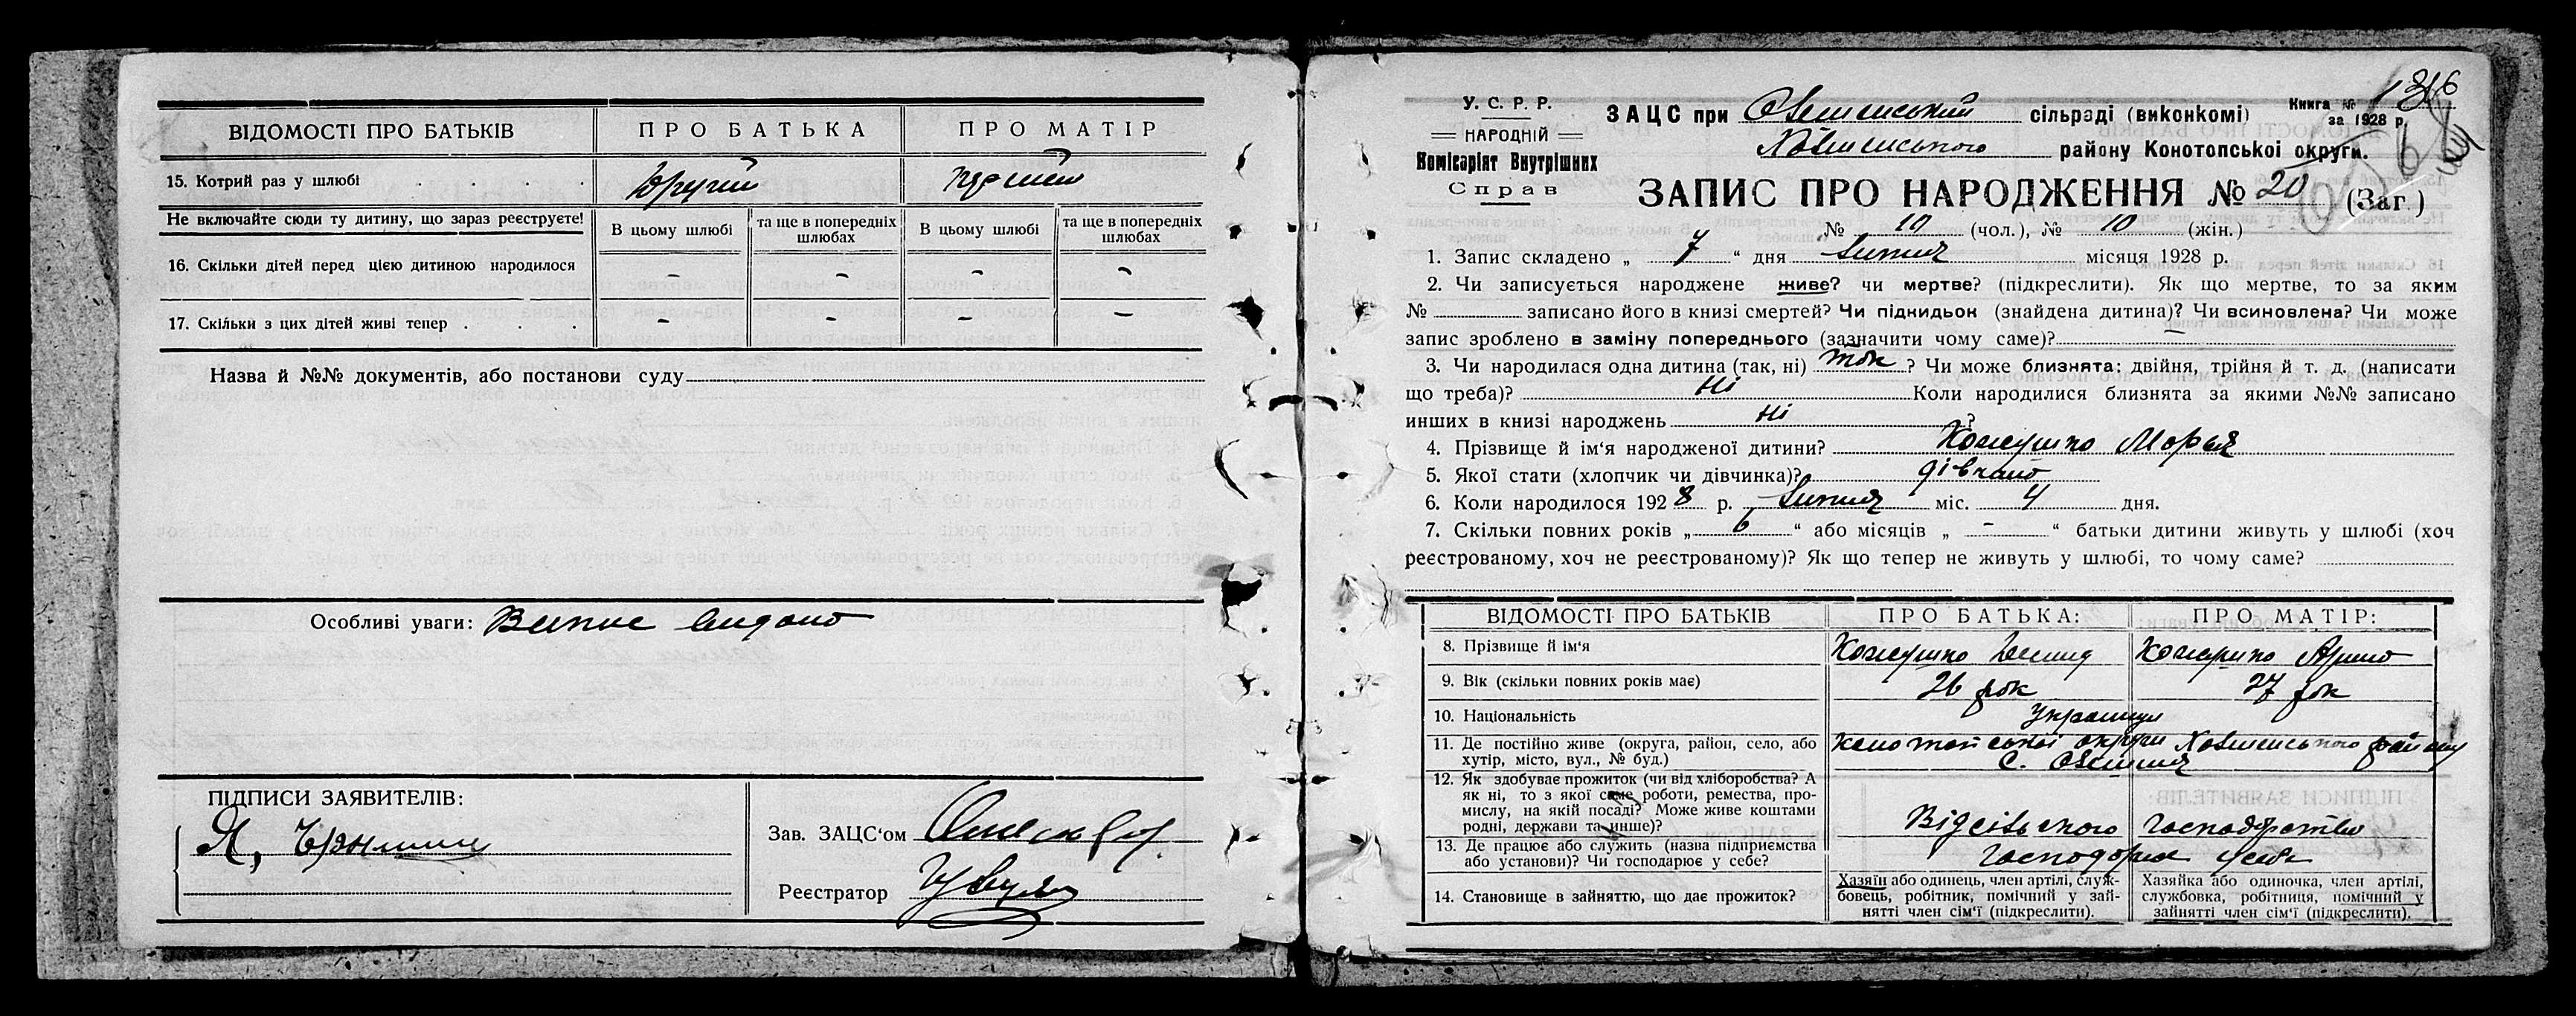 ВІДОМОСТІ ПРО БАТЬКІВ ПРО БАТЬКА ПРО МАТІР
15. Котрий раз у шлюбі . . . . Другий
Не включайте сюди ту дитину, що зараз реєструєте! В цьому шлюбі та ще в попередніх шлюбах В цьому шлюбі та ще в попередніх шлюбах
16. Скільки дітей перед цією дитиною народилося - - - -
17. Скільки з цих дітей живі тепер . . . - - - -
Назва й №№ документів, або постанови суду
Особливі уваги: Випис видано
ПІДПИСИ ЗАЯВИТЕЛІВ:
Зав. ЗАЦС‘ом
Реєстратор
У. С. Р. Р.
НАРОДНІЙ
Комісаріят Внутрішніх
Справ
ЗАЦС при сільраді (виконкомі)
Книга №
за 1928 р.
району Конотопської округи.
ЗАПИС ПРО НАРОДЖЕННЯ № 20 (Заг.)
№ 10 (чол.), № 10 (жін.)
1. Запис складено „ 7 “ дня Липня місяця 1928 р.
2. Чи записується народжене живе? чи мертве? (підкреслити). Як що мертве, то за яким
№ записано його в книзі смертей? Чи підкидьок (знайдена дитина)? Чи всиновлена? Чи може
запис зроблено в заміну попереднього (зазначити чому саме)? —
3. Чи народилася одна дитина (так, ні) так ? Чи може близнята: двійня, трійня й т. д. (написати
що треба)? Ні Коли народилися близнята за якими №№ записано
инших в книзі народжень Ні ?
4. Прізвище й ім‘я народженої дитини? Кожушко Марья
5. Якої стати (хлопчик чи дівчинка)? дівчина
6. Коли народилося 1928 р. Липня міс. 4 дня.
7. Скільки повних років „ 6 “ або місяців „ - “ батьки дитини живуть у шлюбі (хоч
реєстрованому, хоч не реєстрованому)? Як що тепер не живуть у шлюбі, то чому саме?
ВІДОМОСТІ ПРО БАТЬКІВ ПРО БАТЬКА: ПРО МАТІР:
8. Прізвище й ім‘я Кожушко Демид Кожушко Арина
9. Вік (скільки повних років має) 26 рок 27 рок
10. Національність Українці
11. Де постійно живе (округа, район, село, або хутір, місто, вул., № буд.) Конотопської округи району
с.
12. Як здобуває прожиток (чи від хліборобства? А
як ні, то з якої саме роботи, ремества, про-
мислу, на якій посаді? Може живе коштами
родні, держави та инше)? Від сільського господарства
13. Де працює або служить (назва підприємства
або установи)? Чи господарює у себе? господарює у себе
14. Становище в зайняттю, що дає прожиток?
Хазяїн або одинець, член артілі, служ-
бовець, робітник, помічний у зай-
нятті член сім‘ї (підкреслити).
Хазяйка або одиночка, член артілі,
службовка, робітниця, помічний у
зайнятті член сім‘ї (підкреслити).